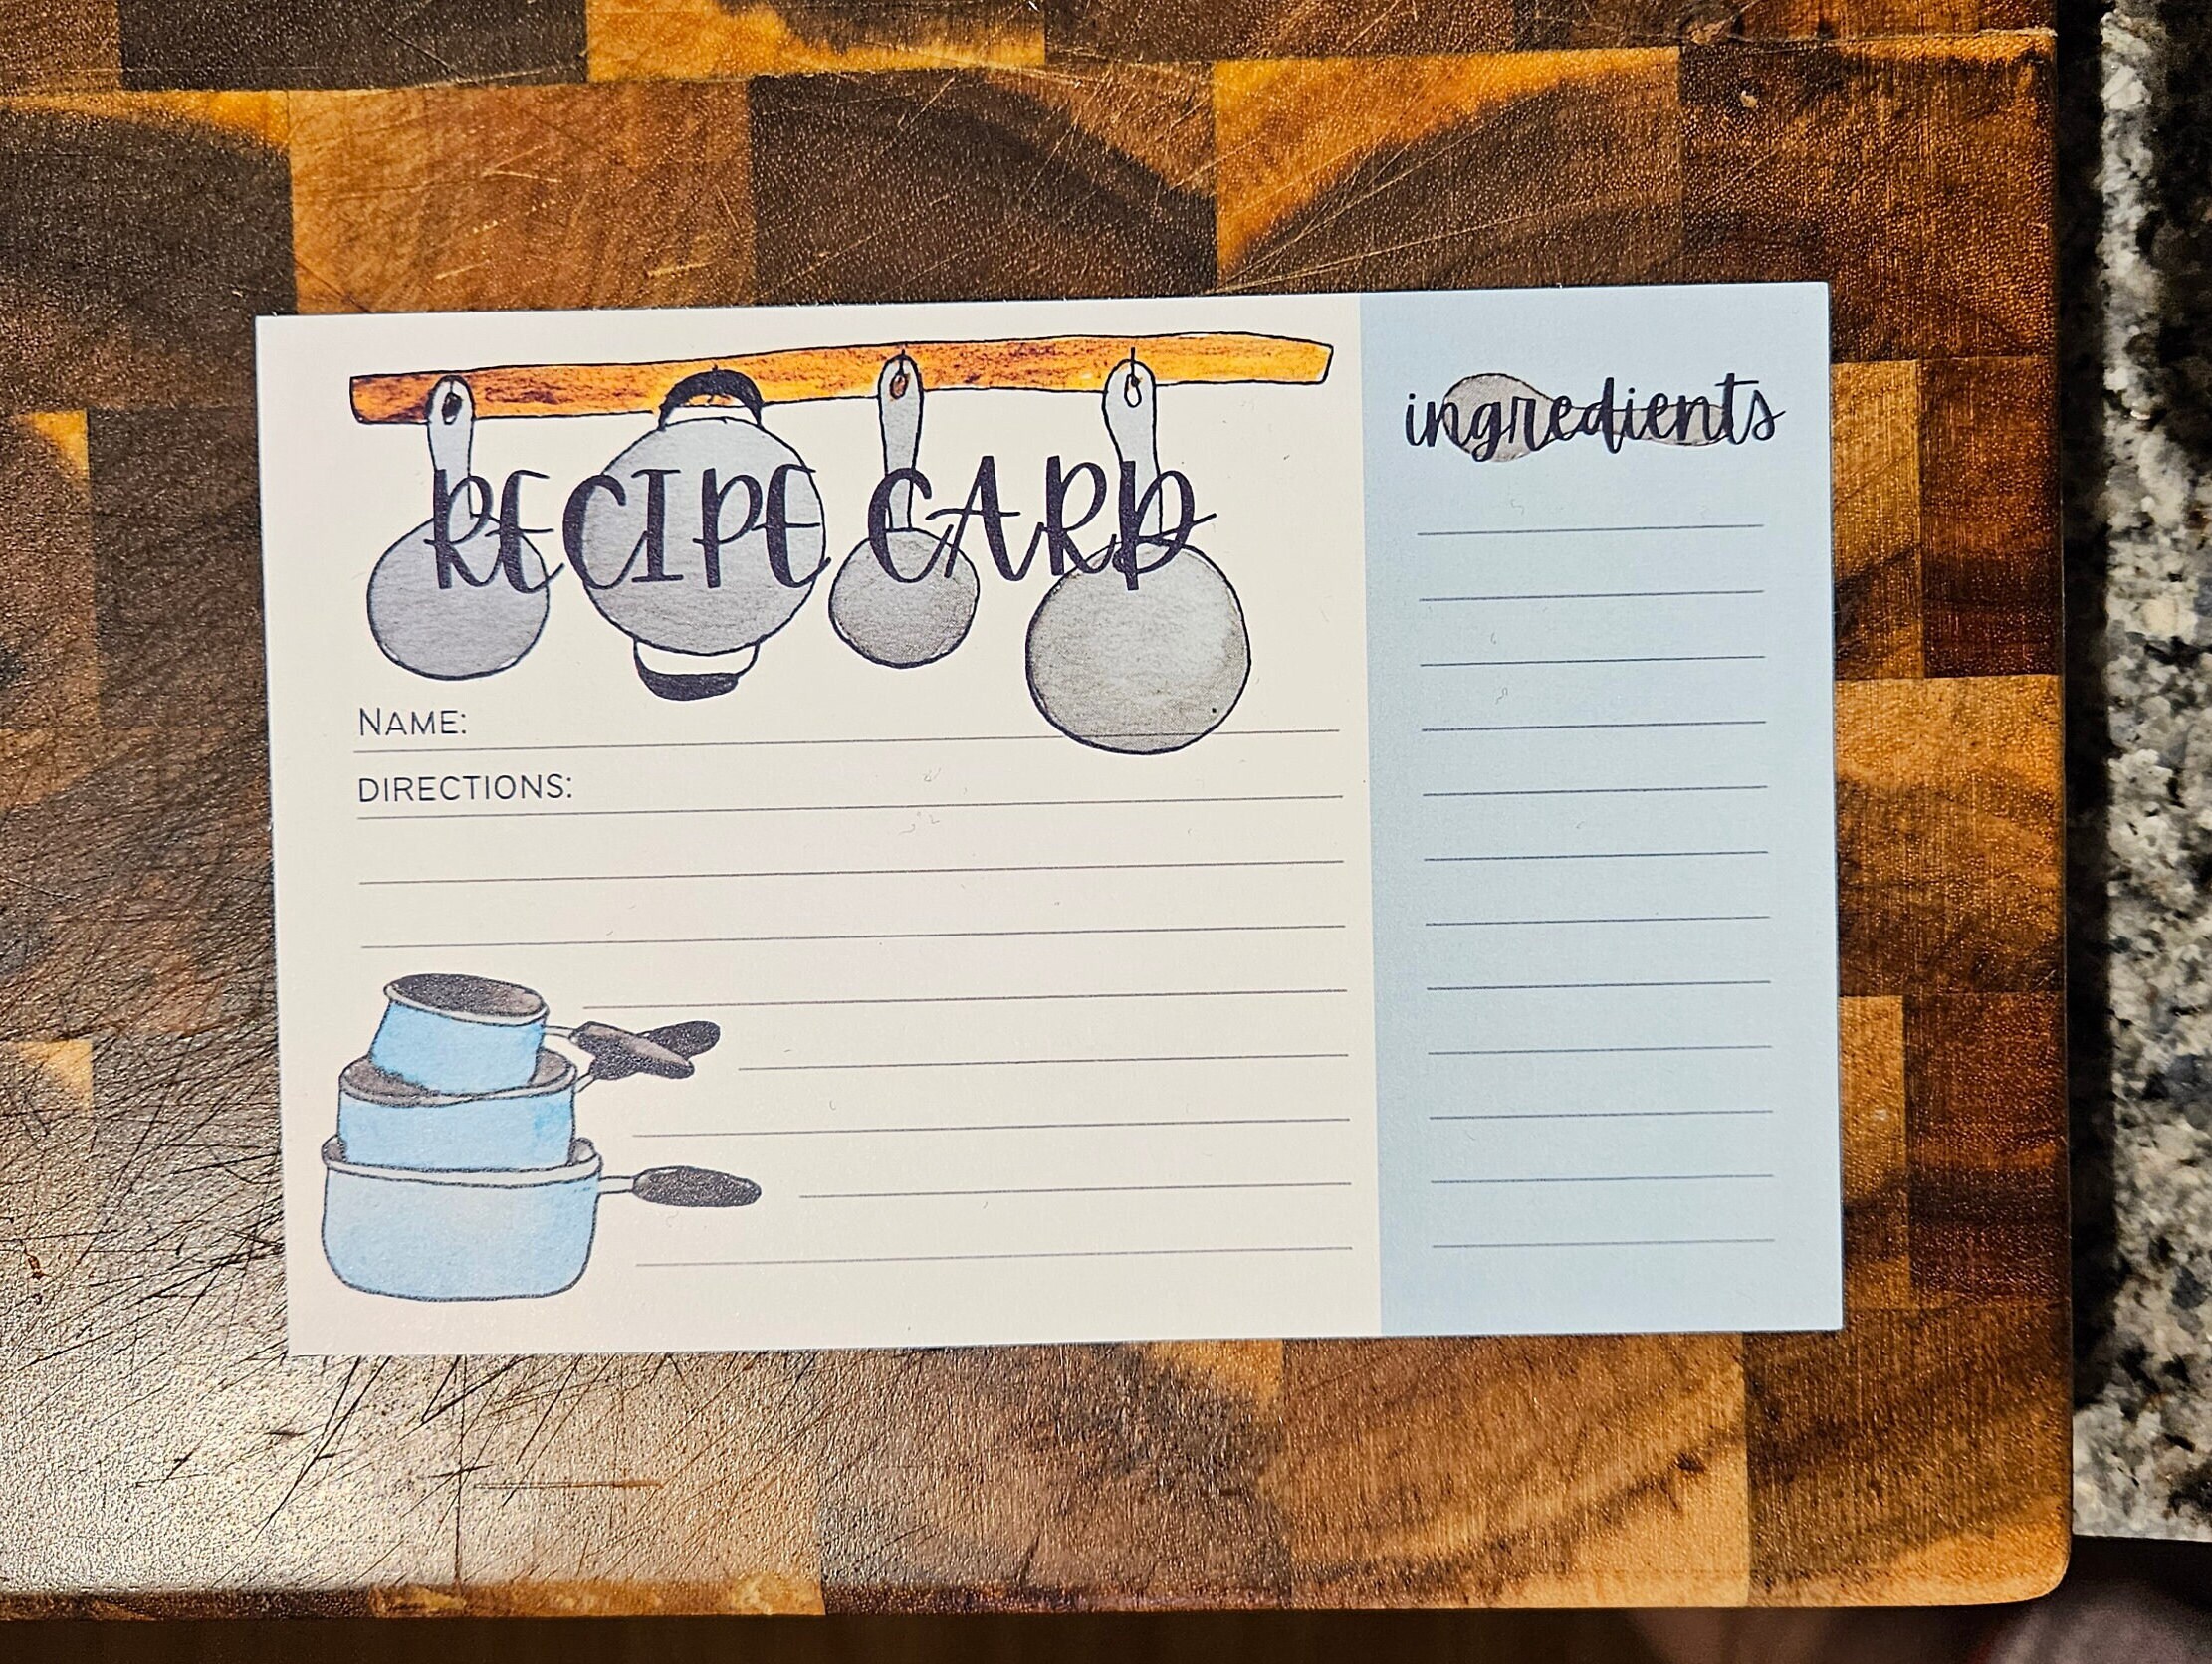 RECIPE CARD
NAME:
DIRECTIONS:
ingredients